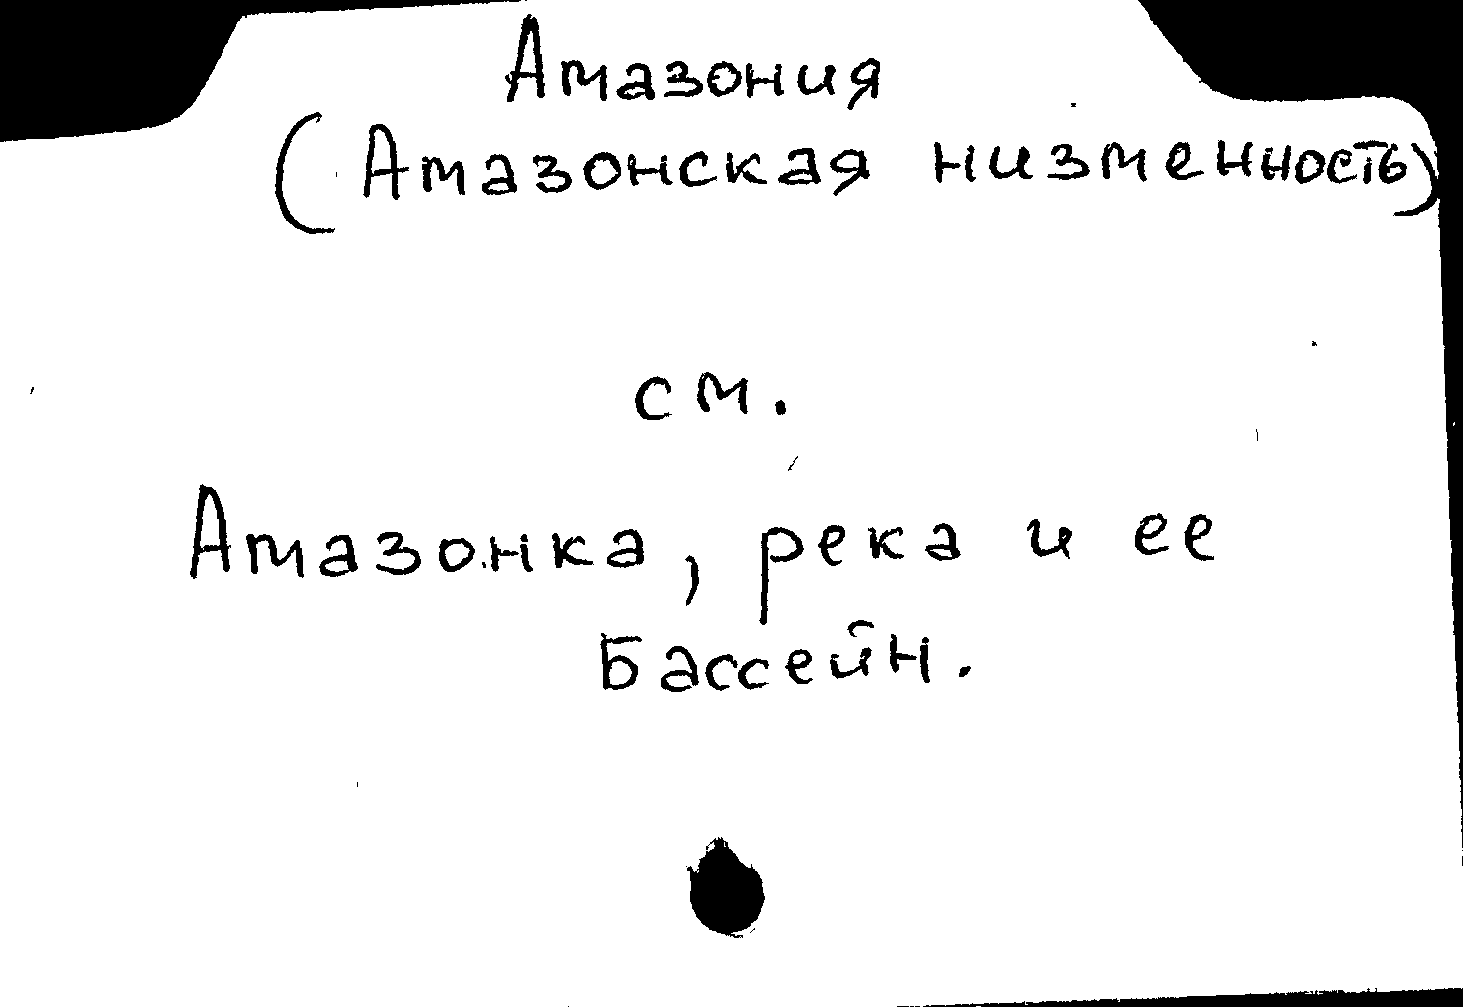 Амазония
(Амазонская низменность)
см.
Амазонка, река и ее
Бассейн.